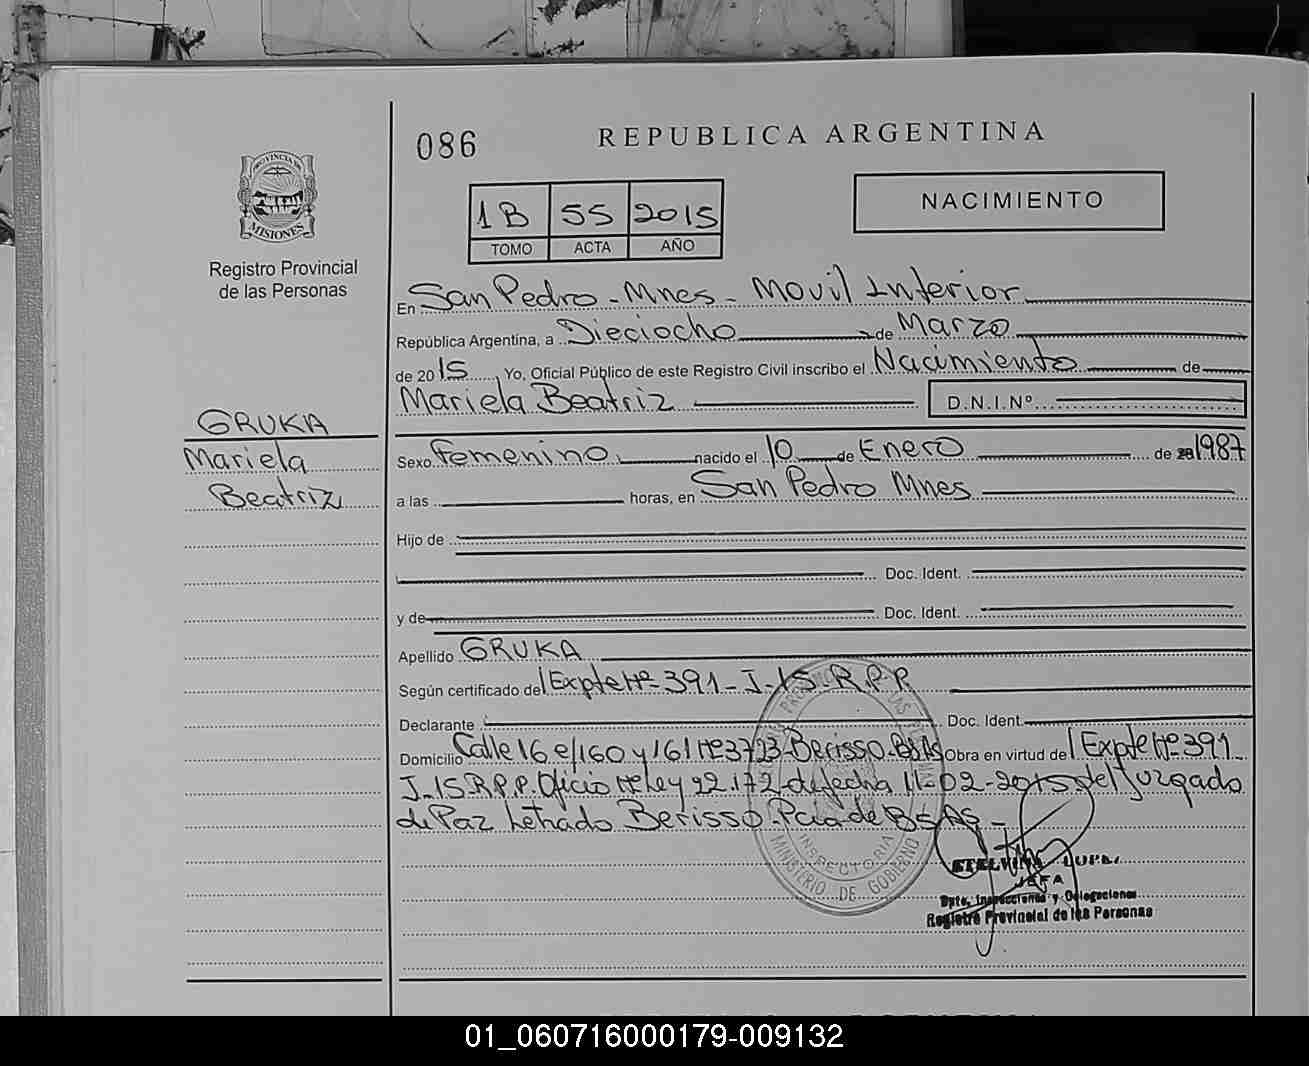 086
REPUBLICA ARGENTINA
PROVINCIA
MISIONES
Registro Provincial
de las Personas
1B 55 2015
TOMO ACTA AÑO
NACIMIENTO
En San Pedro - Mnes - Movil Interior
República Argentina, a Dieciocho de Marzo
de 2015 Yo, Oficial Público de este Registro Civil inscribo el Nacimiento de
Mariela Beatriz D.N.I.Nº
GRUKA
Mariela
Beatriz
Sexo Femenino nacido el 10 de Enero de 1987
a las horas, en San Pedro Mnes
Hijo de
Doc. Ident.
y de Doc. Ident.
Apellido GRUKA
Según certificado del Expte Nº 391-J-15.R.P.P.
Declarante Doc. Ident.
Domicilio Calle 16 e/160 y 161 Nº 3723-Berisso-BsAs Obra en virtud del Expte Nº 391-
J-15.R.P.P. Oficio Ley 22.172 de fecha 11-02-2015 del Juzgado
de Paz Letrado Berisso-Pcia de BSAS-
INSPECTORIA
MINISTERIO DE GOBIERNO
LOPEZ
JEFA
Dpto. Inspecciones y Delegaciones
Registro Provincial de las Personas
01_060716000179-009132